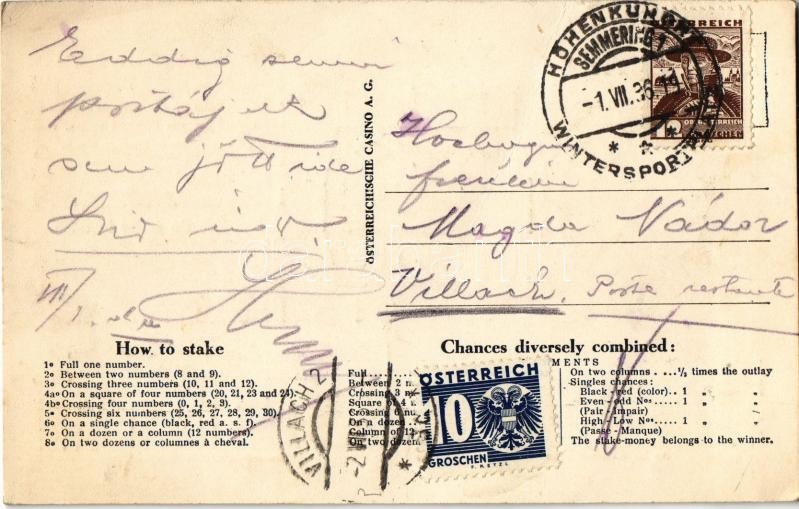 Eddig semmi
postája
sem jött ide
HÖHENKURORT
SEMMERING 1
-1.VII.36
WINTERSPORT
ÖSTERREICH
GROSCHEN
ÖSTERREICHISCHE CASINO A. G.
Magda Nádor
Villach. Poste restante
How to stake
1o Full one number.
2o Between two numbers (8 and 9).
3o Crossing three numbers (10, 11 and 12).
4ao On a square of four numbers (20, 21, 23 and 24).
4bo Crossing four numbers (0, 1, 2, 3).
5o Crossing six nunbers (25, 26, 27, 28, 29, 30).
6o On a single chance (black, red a. s. f.).
7o On a dozen or a column (12 numbers).
8o On two dozens or columns à cheval.
Chances diversely combined:
MENTS
Full
Between 2 n
Crossing 3 n
Square of 4 n
Crossing 6 nu
On a dozen
Column of 12
On two dozen
On two columns . . . ½ times the outlay
Singles chances:
Black red (color) . . 1 " "
Even - odd Nos . . . 1 " "
(Pair - Impair)
High - Low Nos . . . 1 " "
(Passe - Manque)
The stake-money belongs to the winner.
VILLACH 2
ÖSTERREICH
10
GROSCHEN
darabanth